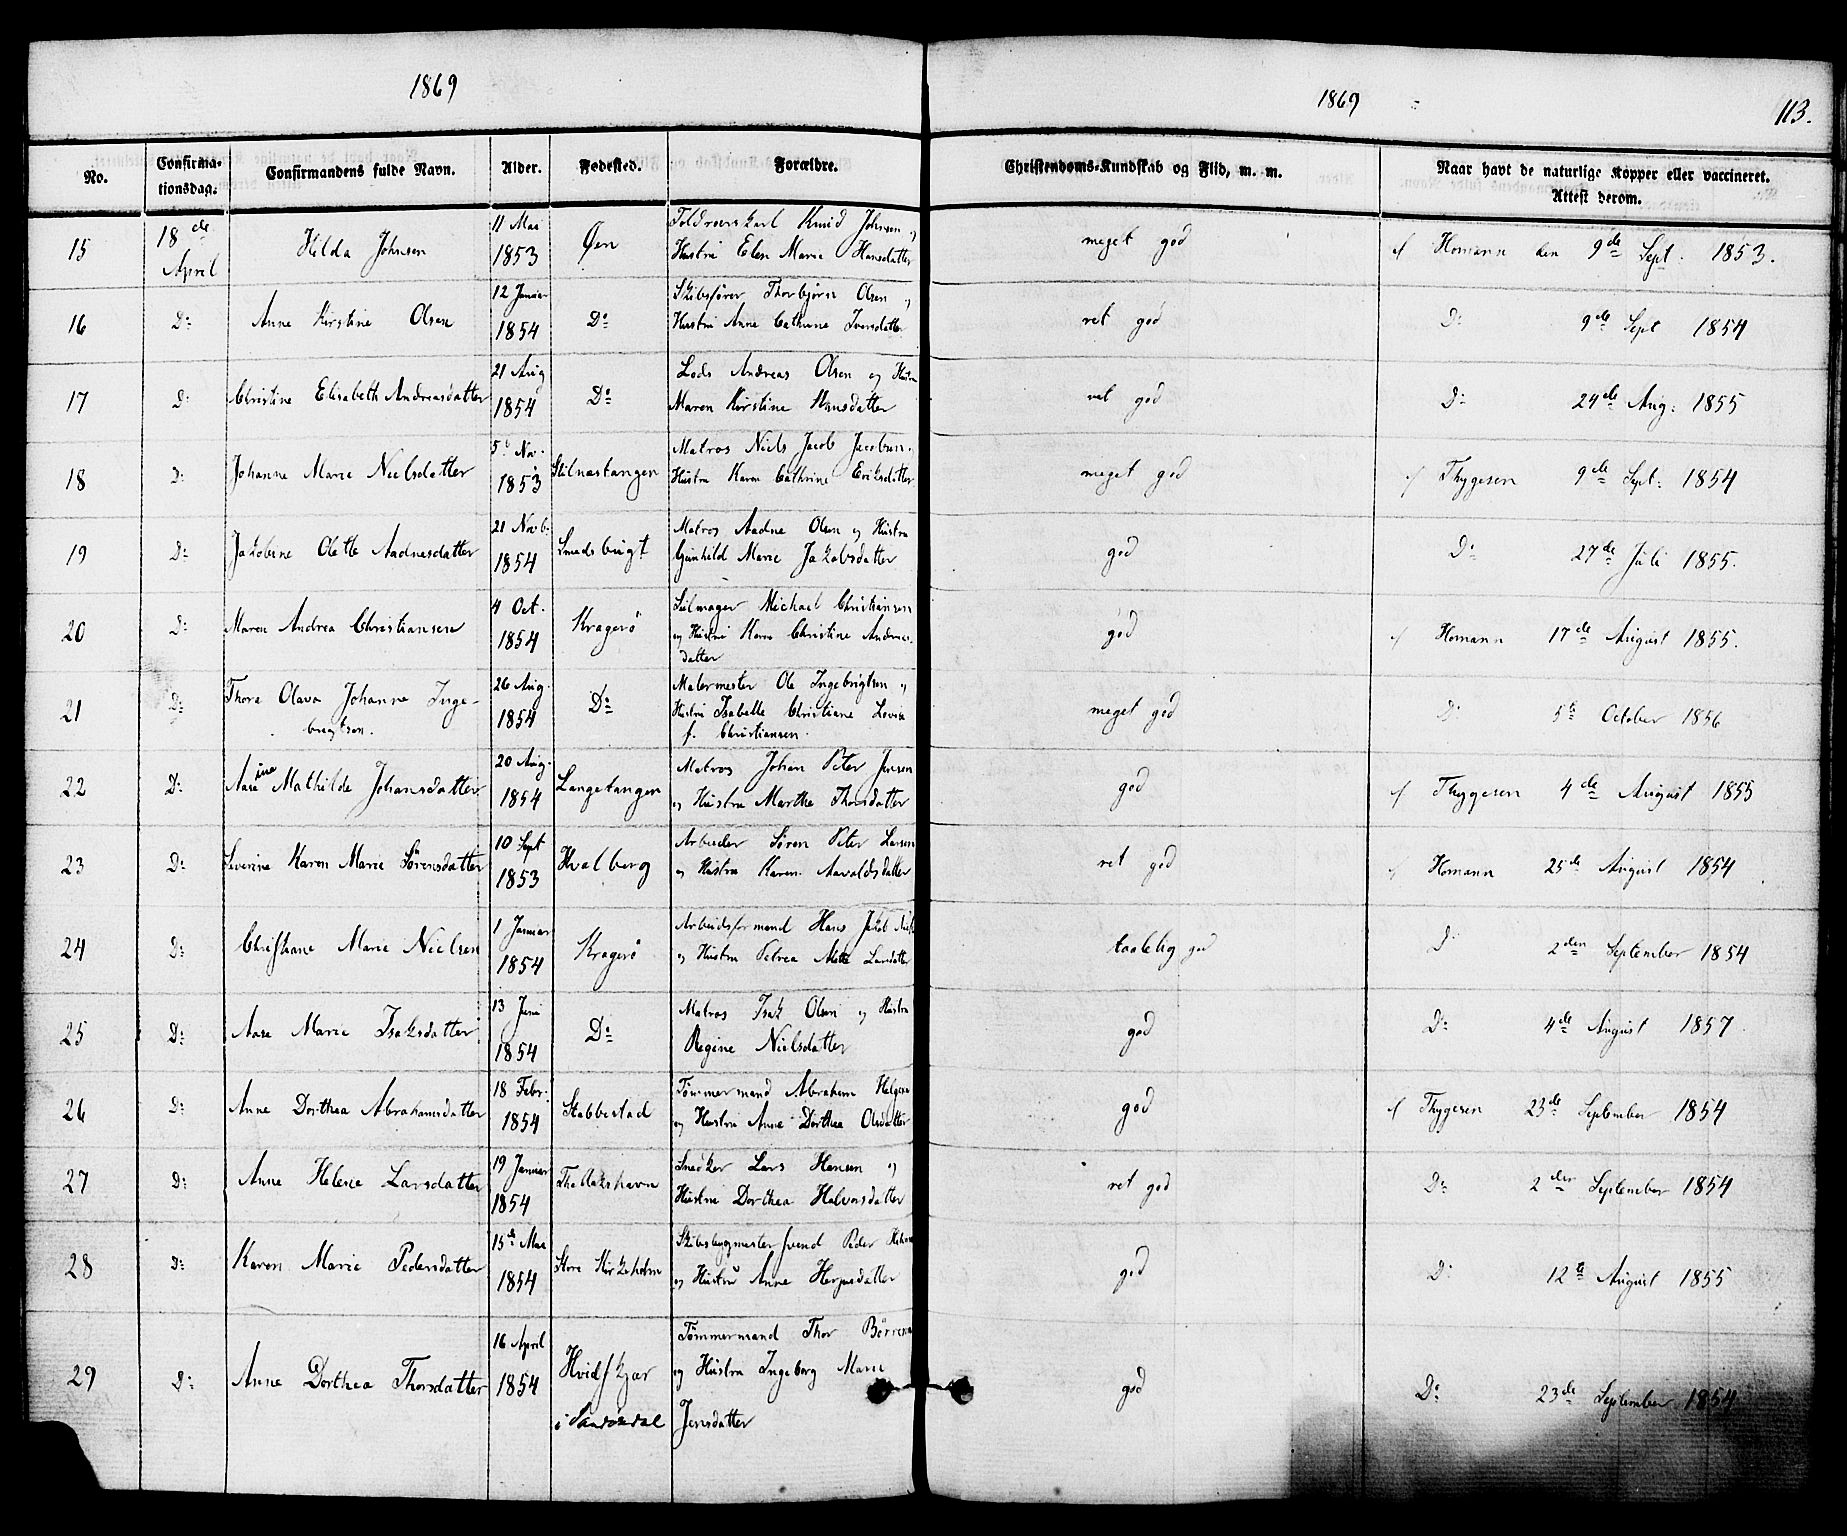 1869
1869
113.
No.
Confirma-
tionsdag.
Confirmandens fulde Navn.
Alder.
Fødested.
Forældre.
Christendoms-Kundskab og Flid, m. m.
Naar havt de naturlige Kopper eller vaccineret.
Attest derom.
15 18de April Hilda Johnsen 11 Mai 1853 Øen Knud Johnsen og Hustru Elen Marie Hansdatter meget god af Homann den 9de Sept. 1853.
16 Do Anne Kirstine Olsen 12 Januar 1854 Do Skibsfører Thorbjørn Olsen og Hustru Anne Cathrine Iversdatter ret god Do 9de Sept 1854
17 Do Christine Elisabeth Andreasdatter 21 Aug 1854 Do Lods Andreas Olsen og Hustru Maren Kirstine Hansdatter ret god Do 24de Aug: 1855
18 Do Johanne Marie Nielsdatter 5te Nov. 1853 Stilnestangen Matros Niels Jacob Jacobsen Hustru Karen Cathrine Eriksdatter meget god af Thygesen 9de Sept: 1854
19 Do Jakobine Olette Aadnesdatter 21 Novb. 1854 Smedsbugt Matros Aadne Olsen og Hustru Gunhild Marie Jakobsdatter god Do 27de Juli 1855.
20 Do Maren Andrea Christiansen 4 Oct. 1854 Kragerö Seilmager Michael Christiansen og Hustru Karen Christine Andreas-
datter god af Homann 17de August 1855.
21 Do Thora Olava Johanne Inge-
brigtsen. 26 Aug. 1854 Do Malermester Ole Ingebrigtsen og Hustru Isabelle Christiane Lovise f. Christiansen. meget god Do 5te October 1856
22 Do Aasine Mathilde Johansdatter 20 Aug. 1854 Langetangen Matros Johan Peter Jensen og Hustru Marthe Thorsdatter god af Thygesen 4de August 1855
23 Do Severine Karen Marie Sörensdatter 10 Sept 1853 Hvalberg Arbeider Sören Peter Larsen og Hustru Karen Aavaldsdatter ret god af Homann 25de August 1854
24 Do Christiane Marie Nielsen 1 Januar 1854 Kragerö Arbeidsformand Hans Jakob og Hustru Petrea Mette Larsdatter taalelig god Do 2den September 1854
25 Do Aase Marie Isaksdatter 13 Juni 1854 Do Matros Isak Olsen og Hustru Regine Nielsdatter god Do 4de August 1857.
26 Do Anne Dorthea Abrahamsdatter 18 Febr. 1854 Stabbestad Tømmermand Abraham Helgesen og Hustru Anne Dorthea Olsdatter god af Thygesen 23de September 1854
27 Do Anne Helene Larsdatter 19 Januar 1854 Snedker Lars Hansen og Hustru Dorthea Halvorsdatter ret god Do 2den September 1854
28 Do Karen Marie Pedersdatter 15de Mai 1854 Store Kirkeholm Peder og Hustru Anne god Do 12te August 1855
29 Do Anne Dorthea Thorsdatter 16 April 1854 Hvidskjær
i Sandökdal Tømmermand Thor og Hustru Ingeborg Marie Jensdatter god Do 23de September 1854